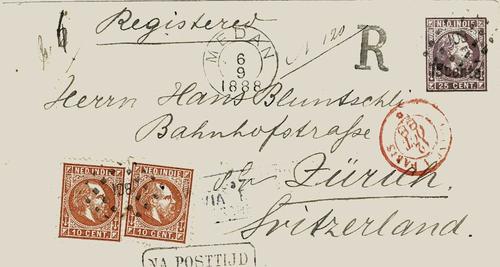 6
Registered
MEDAN
6
9
1888
N 120
R
NED.INDIE
25 CENT.
Herrn Hans Bluntschli
Bahnhofstraße
PARIS
Zürich.
Switzerland.
NED.INDIE
10 CENT.
NED.INDIE
10 CENT.
NA POSTTIJD